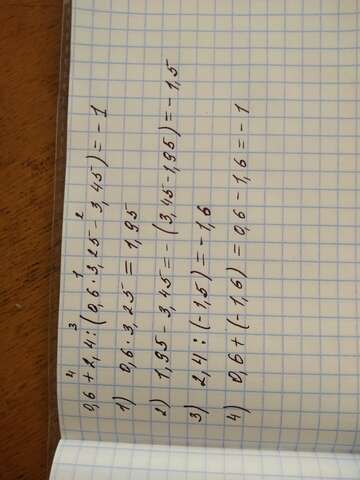 4 3 1 2
0,6 + 2,4 : (0,6 · 3,25 - 3,45) = - 1
1) 0,6 · 3,25 = 1,95
2) 1,95 - 3,45 = - (3,45 - 1,95) = - 1,5
3) 2,4 : (-1,5) = - 1,6
4) 0,6 + (-1,6) = 0,6 - 1,6 = - 1